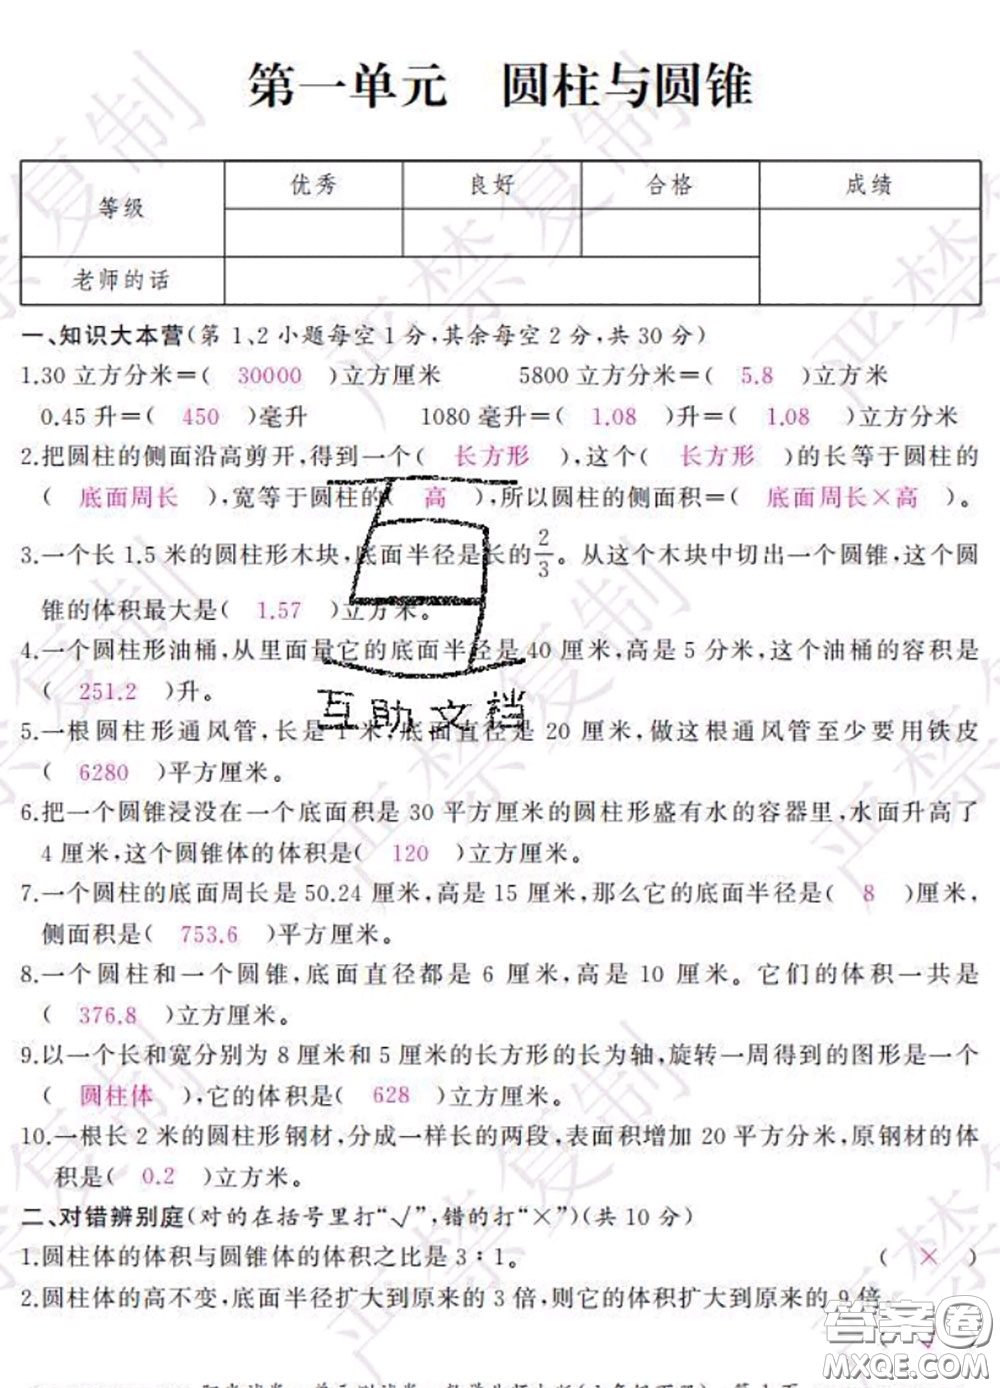 第一单元 圆柱与圆锥
等级 优秀 良好 合格 成绩
老师的话
一、知识大本营(第 1、2 小题每空 1 分,其余每空 2 分,共 30 分)
1.30 立方分米=( 30000 )立方厘米 5800 立方分米=( 5.8 )立方米
0.45 升=( 450 )毫升 1080 毫升=( 1.08 )升=( 1.08 )立方分米
2.把圆柱的侧面沿高剪开,得到一个( 长方形 ),这个( 长方形 )的长等于圆柱的
( 底面周长 ),宽等于圆柱的( 高 ),所以圆柱的侧面积=( 底面周长×高 )。
3.一个长 1.5 米的圆柱形木块,底面半径是长的2/3。从这个木块中切出一个圆锥,这个圆
锥的体积最大是( 1.57 )立方米。
4.一个圆柱形油桶,从里面量它的底面半径是 40 厘米,高是 5 分米,这个油桶的容积是
( 251.2 )升。
互助文档
5.一根圆柱形通风管,长是 1 米,底面直径是 20 厘米,做这根通风管至少要用铁皮
( 6280 )平方厘米。
6.把一个圆锥浸没在一个底面积是 30 平方厘米的圆柱形盛有水的容器里,水面升高了
4 厘米,这个圆锥体的体积是( 120 )立方厘米。
7.一个圆柱的底面周长是 50.24 厘米,高是 15 厘米,那么它的底面半径是( 8 )厘米,
侧面积是( 753.6 )平方厘米。
8.一个圆柱和一个圆锥,底面直径都是 6 厘米,高是 10 厘米。它们的体积一共是
( 376.8 )立方厘米。
9.以一个长和宽分别为 8 厘米和 5 厘米的长方形的长为轴,旋转一周得到的图形是一个
( 圆柱体 ),它的体积是( 628 )立方厘米。
10.一根长 2 米的圆柱形钢材,分成一样长的两段,表面积增加 20 平方分米,原钢材的体
积是( 0.2 )立方米。
二、对错辨别庭(对的在括号里打“√”,错的打“×”)(共 10 分)
1.圆柱体的体积与圆锥体的体积之比是 3∶1。 ( × )
2.圆柱体的高不变,底面半径扩大到原来的 3 倍,则它的体积扩大到原来的 9 倍。
( √ )
答案圈
MXQE.COM
严禁复制